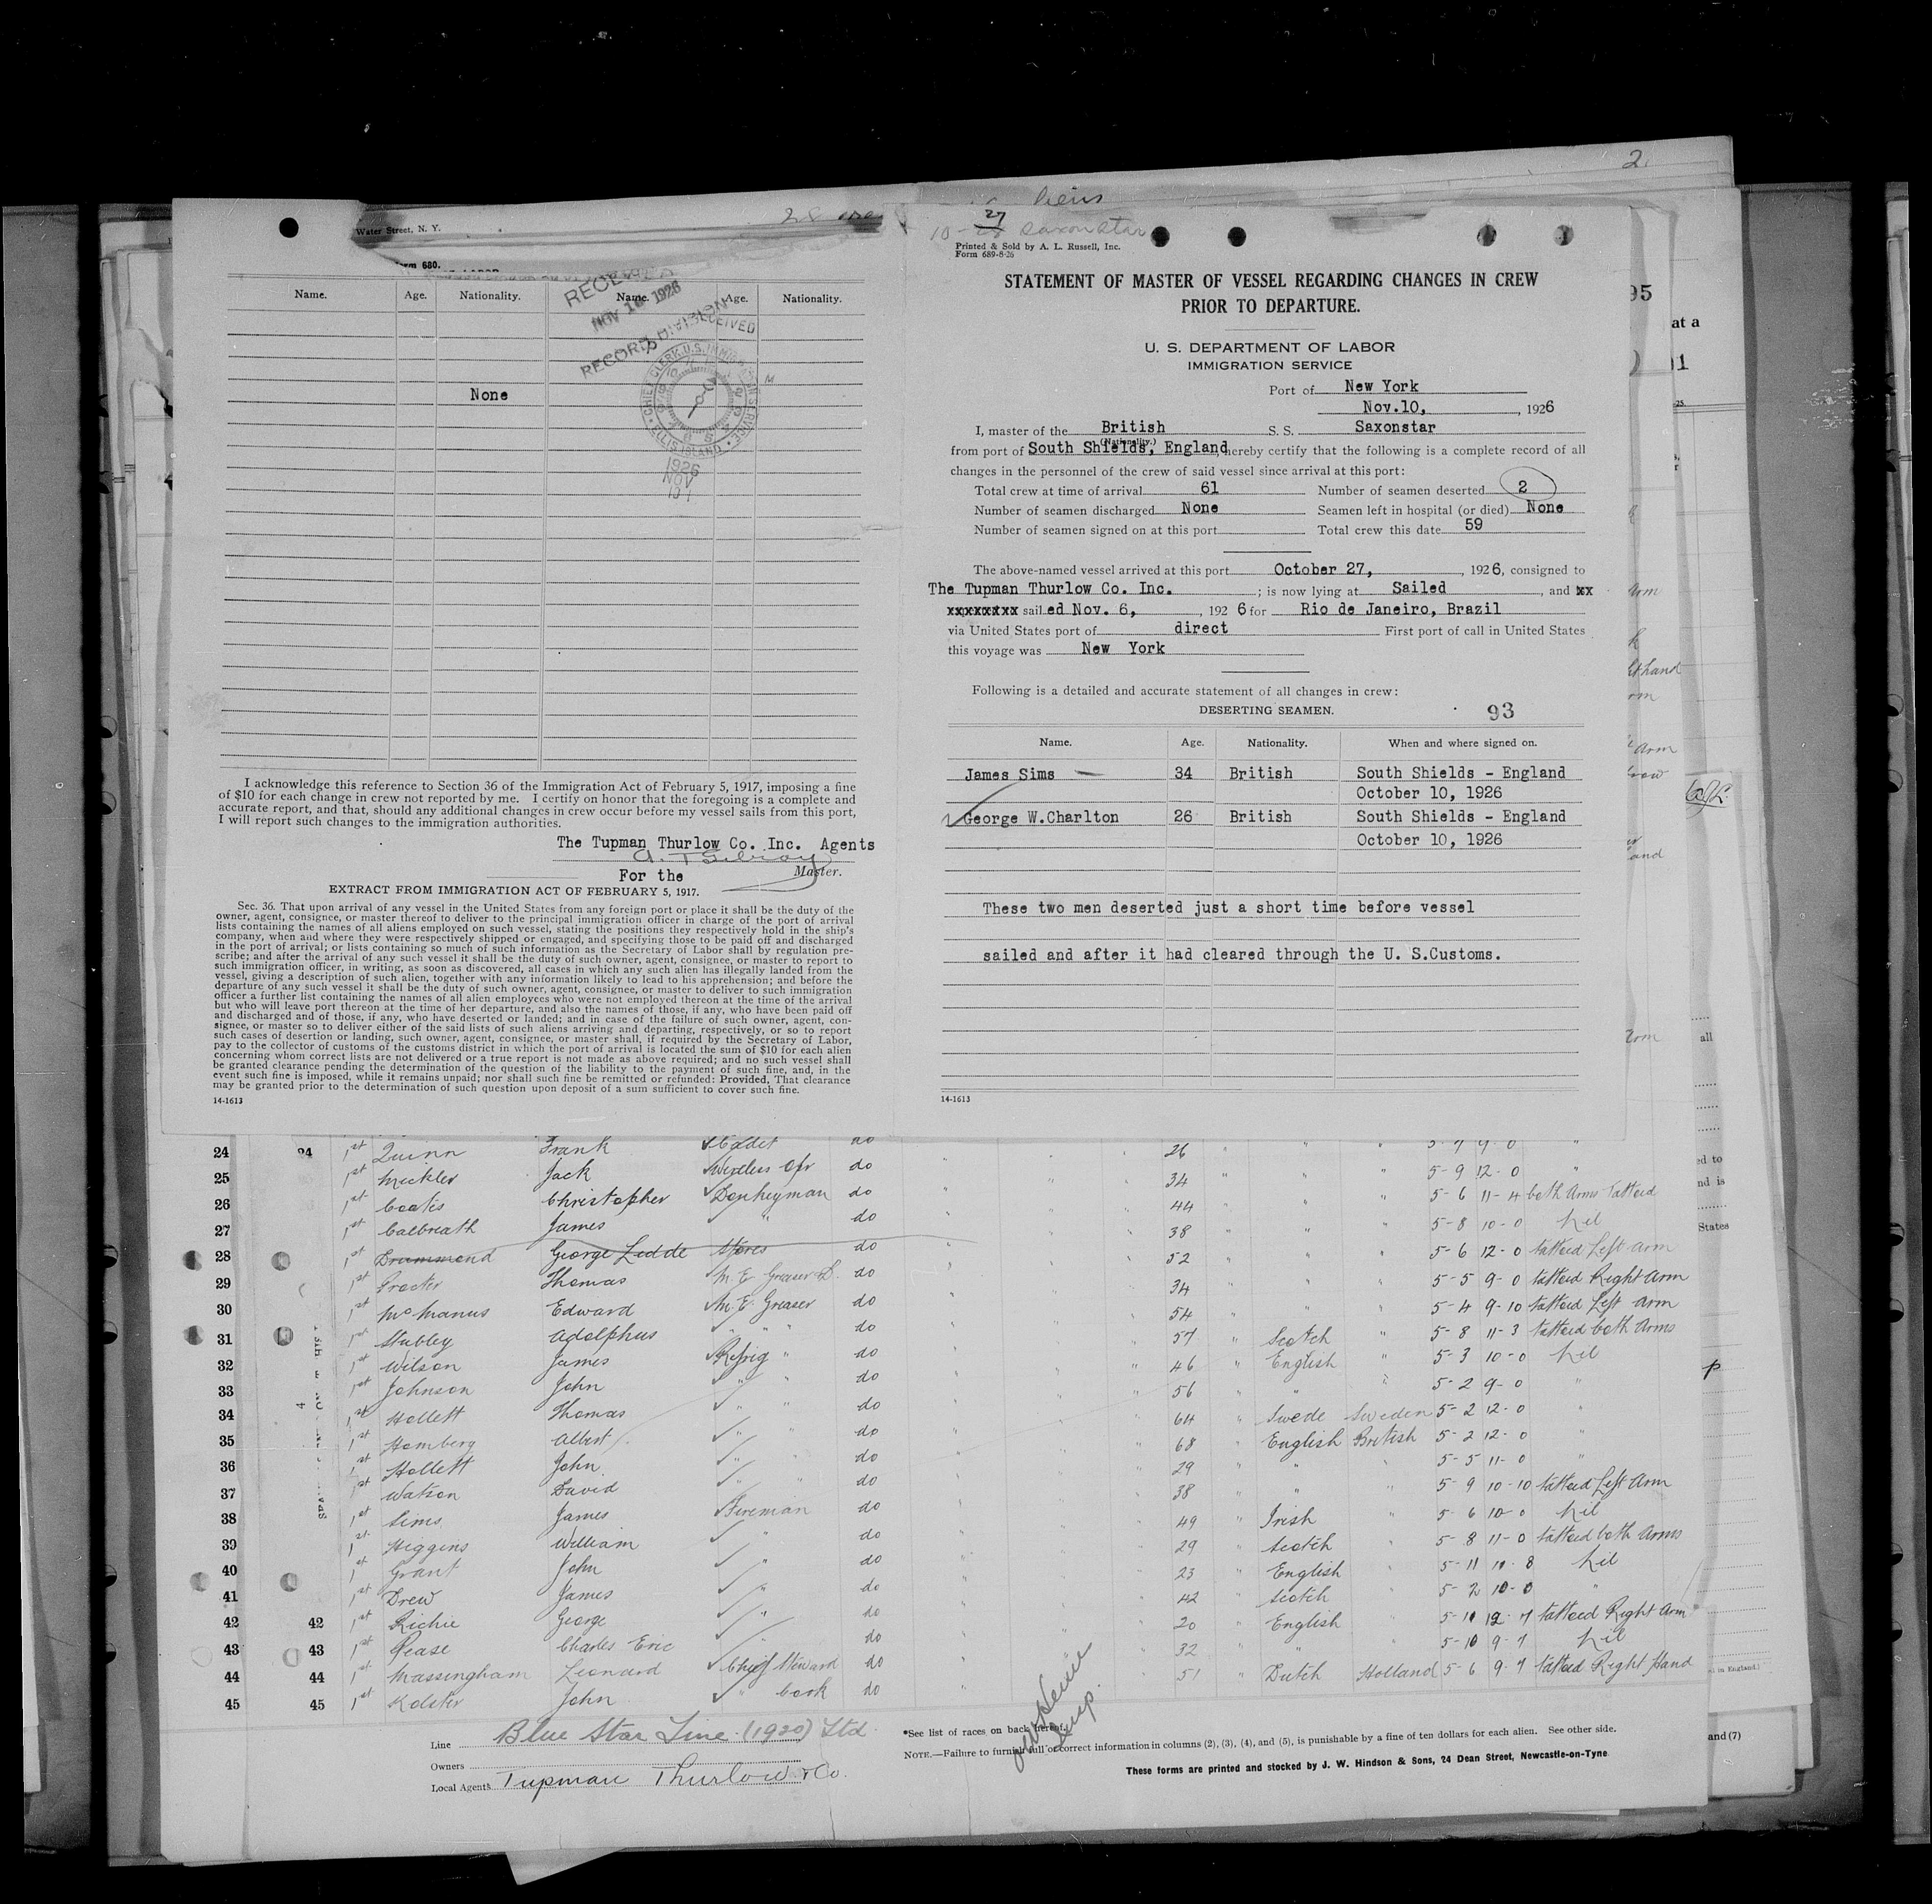 2.
Water Street, N. Y.
rm 680.
Name. Age. Nationality. Name. Age. Nationality.
RECEIVED
NOV 1 1926
RECORD DIVISION
RECEIVED
CHIEF CLERK U.S. IMMIGRATION SERVICE
ELLIS ISLAND
1926
NOV
None
I acknowledge this reference to Section 36 of the Immigration Act of February 5, 1917, imposing a fine
of $10 for each change in crew not reported by me. I certify on honor that the foregoing is a complete and
accurate report, and that, should any additional changes in crew occur before my vessel sails from this port,
I will report such changes to the immigration authorities.
The Tupman Thurlow Co. Inc. Agents
For the Master.
EXTRACT FROM IMMIGRATION ACT OF FEBRUARY 5, 1917.
Sec. 36. That upon arrival of any vessel in the United States from any foreign port or place it shall be the duty of the
owner, agent, consignee, or master thereof to deliver to the principal immigration officer in charge of the port of arrival
lists containing the names of all aliens employed on such vessel, stating the positions they respectively hold in the ship's
company, when and where they were respectively shipped or engaged, and specifying those to be paid off and discharged
in the port of arrival; or lists containing so much of such information as the Secretary of Labor shall by regulation pre-
scribe; and after the arrival of any such vessel it shall be the duty of such owner, agent, consignee, or master to report to
such immigration officer, in writing, as soon as discovered, all cases in which any such alien has illegally landed from the
vessel, giving a description of such alien, together with any information likely to lead to his apprehension; and before the
departure of any such vessel it shall be the duty of such owner, agent, consignee, or master to deliver to such immigration
officer a further list containing the names of all alien employees who were not employed thereon at the time of the arrival
but who will leave port thereon at the time of her departure, and also the names of those, if any, who have been paid off
and discharged and of those, if any, who have deserted or landed; and in case of the failure of such owner, agent, con-
signee, or master so to deliver either of the said lists of such aliens arriving and departing, respectively, or so to report
such cases of desertion or landing, such owner, agent, consignee, or master shall, if required by the Secretary of Labor,
pay to the collector of customs of the customs district in which the port of arrival is located the sum of $10 for each alien
concerning whom correct lists are not delivered or a true report is not made as above required; and no such vessel shall
be granted clearance pending the determination of the question of the liability to the payment of such fine, and, in the
event such fine is imposed, while it remains unpaid; nor shall such fine be remitted or refunded: Provided, That clearance
may be granted prior to the determination of such question upon deposit of a sum sufficient to cover such fine.
14-1613
27
10-28 Saxonstar
Printed & Sold by A. L. Russell, Inc.
Form 689-8-26
STATEMENT OF MASTER OF VESSEL REGARDING CHANGES IN CREW
PRIOR TO DEPARTURE.
U. S. DEPARTMENT OF LABOR
IMMIGRATION SERVICE
Port of New York
Nov.10, , 1926
I, master of the British S. S. Saxonstar
(Nationality.)
from port of South Shields, England hereby certify that the following is a complete record of all
changes in the personnel of the crew of said vessel since arrival at this port:
Total crew at time of arrival 61 Number of seamen deserted 2
Number of seamen discharged None Seamen left in hospital (or died) None
Number of seamen signed on at this port Total crew this date 59
The above-named vessel arrived at this port October 27, , 1926, consigned to
The Tupman Thurlow Co. Inc. ; is now lying at Sailed , and xx
xxxxxxxx sailed Nov. 6, , 1926 for Rio de Janeiro, Brazil
via United States port of direct First port of call in United States
this voyage was New York
Following is a detailed and accurate statement of all changes in crew:
DESERTING SEAMEN. 93
Name. Age. Nationality. When and where signed on.
James Sims 34 British South Shields - England
October 10, 1926
George W.Charlton 26 British South Shields - England
October 10, 1926
These two men deserted just a short time before vessel
sailed and after it had cleared through the U. S.Customs.
14-1613
95
at a
Arm
all
ed to
nd is
States
and (7)
24 24 1st Quinn Frank Cadet do 26 5-7 9-0 "
25 1st Mickler Jack Wireless Opr do 34 5-9 12-0 "
26 1st Coatis Christopher Donkeyman do 44 5-6 11-4 both Arms Tattoed
27 1st Calbreath James " do 38 5-8 10-0 Nil
28 1st Drummond George Ledde Stores do 52 5-6 12-0 tattoed Left Arm
29 1st Procter Thomas M.E. Greaser D. do 34 5-5 9-0 tattoed Right Arm
30 1st McManus Edward M.E. Greaser do 54 5-4 9-10 tattoed Left Arm
31 1st Stubley Adolphus " " do 57 " Scotch " 5-8 11-3 tattoed both Arms
32 1st Wilson James Refrig " do 46 " English " 5-3 10-0 Nil
33 1st Johnson John " " do 56 " " " 5-2 9-0 "
34 1st Hollett Thomas " " do 64 " Swede Sweden 5-2 12-0 "
35 1st Homberg Albert " " do 68 " English British 5-2 12-0 "
36 1st Hollett John " " do 29 " " " 5-5 11-0 "
37 1st Watson David " " do 38 " " " 5-9 10-10 tattoed Left Arm
38 1st Sims James Fireman do 49 " Irish " 5-6 10-0 Nil
39 1st Higgins William " do 29 " Scotch " 5-8 11-0 tattoed both Arms
40 1st Grant John " do 23 " English " 5-11 11-8 Nil
41 1st Drew James " do 42 " Scotch 5-2 10-0 "
42 42 1st Richie George " do 20 " English 5-11 12-7 tattoed Right Arm
43 43 1st Pease Charles Eric " do 32 " " 5-10 9-7 Nil
44 44 1st Massingham Leonard Chief Steward do 51 " Dutch Holland 5-6 9-7 tattoed Right Hand
45 45 1st Kolster John " Cook do
Line Blue Star Line (1920) Ltd.
Owners
Local Agents Tupman Thurlow & Co.
*See list of races on back hereof.
NOTE.—Failure to furnish full or correct information in columns (2), (3), (4), and (5), is punishable by a fine of ten dollars for each alien. See other side.
These forms are printed and stocked by J. W. Hindson & Sons, 24 Dean Street, Newcastle-on-Tyne